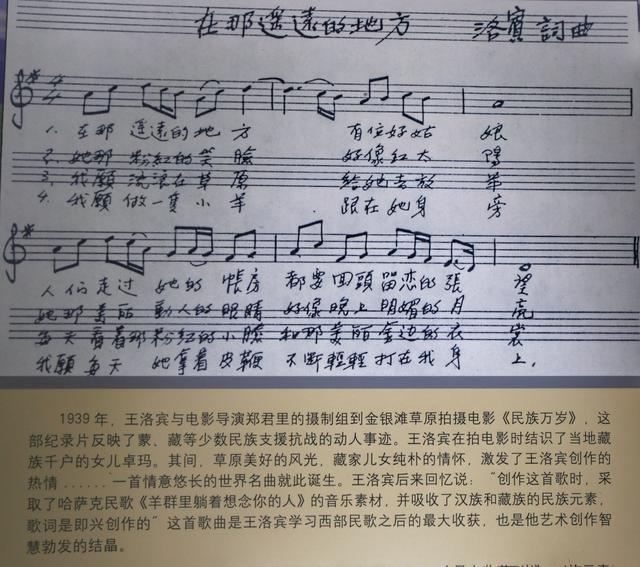 在那遥遠的地方 洛賓詞曲
4
4
1. 在那 遥遠的地 方 有位好姑 娘
2. 她那 粉紅的笑 臉 好像红太 陽
3. 我願 流浪在草 原 给她去放 羊
4. 我願 做一隻小 羊 跟在她身 旁
人们走过 她的 帳房 都要 回頭 留恋的 張 望
她那美丽 動人的 眼睛 好像 晚上 明媚的 月 亮
每天看着那 粉红的小臉 和那美丽 金边的 衣 裳
我願 每天 她拿着 皮鞭 不断輕輕 打在我 身 上.
1939 年，王洛宾与电影导演郑君里的摄制组到金银滩草原拍摄电影《民族万岁》，这
部纪录片反映了蒙、藏等少数民族支援抗战的动人事迹。王洛宾在拍电影时结识了当地藏
族千户的女儿卓玛。其间，草原美好的风光，藏家儿女纯朴的情怀，激发了王洛宾创作的
热情 ...... 一首情意悠长的世界名曲就此诞生。王洛宾后来回忆说：“创作这首歌时，采
取了哈萨克民歌《羊群里躺着想念你的人》的音乐素材，并吸收了汉族和藏族的民族元素，
歌词是即兴创作的” 这首歌曲是王洛宾学习西部民歌之后的最大收获，也是他艺术创作智
慧勃发的结晶。